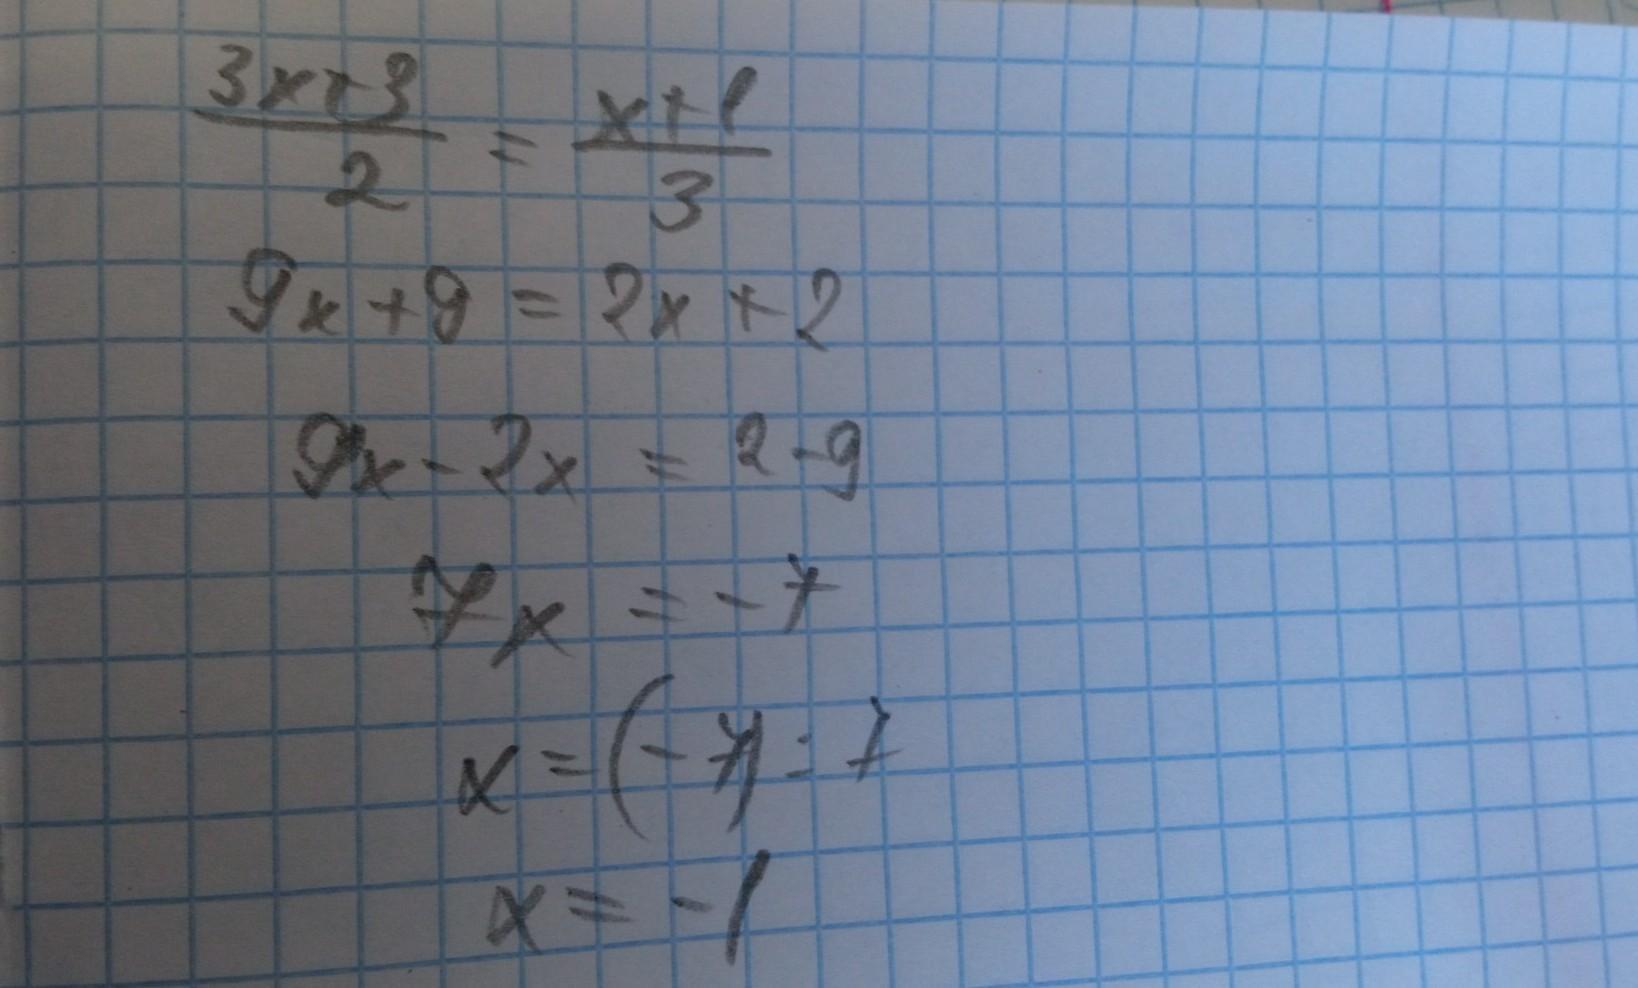 3x+3/2 = x+1/3
9x+9 = 2x+2
9x-2x = 2-9
7x = -7
x = (-7) : 7
x = -1